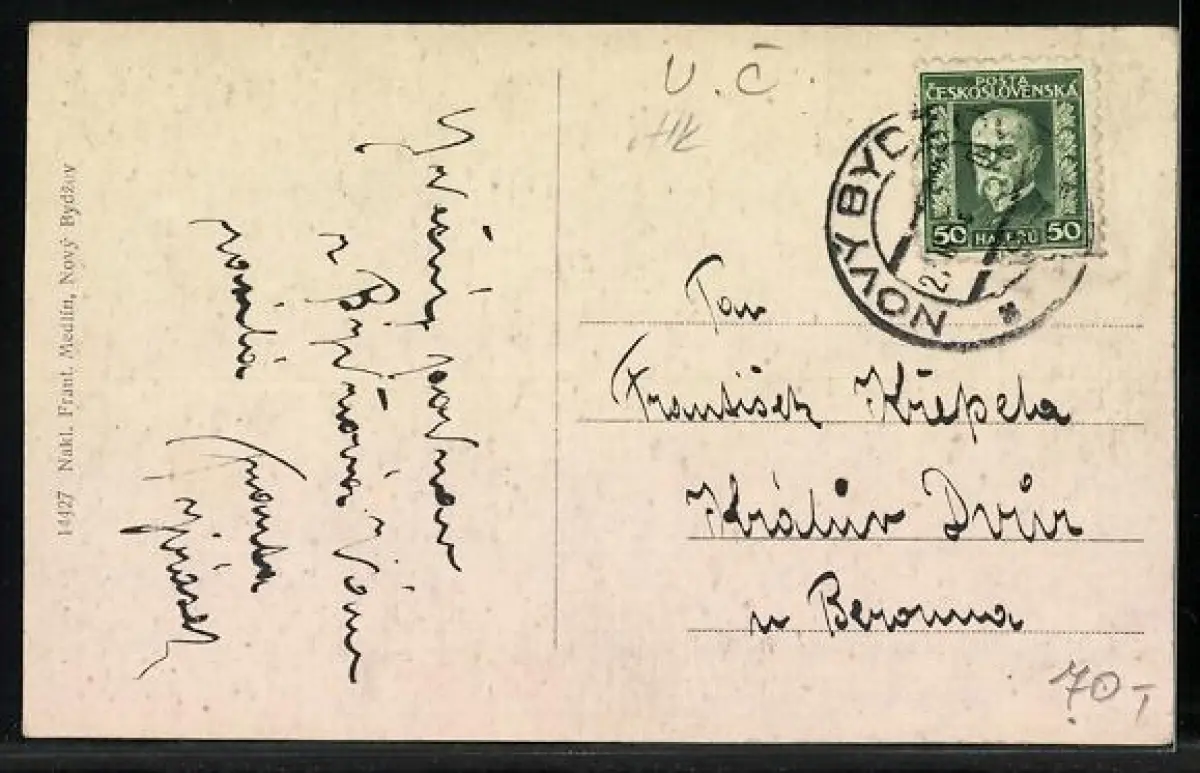 14427 Nakl. Frant. Medlín, Nový Bydžov
Srdečný pozdrav
posílá
Franta
U.Č.
HK
POŠTA
ČESKOSLOVENSKÁ
50 HALÉŘŮ 50
NOVÝ BYD
Pan
František Křepela
Králův Dvůr
u Berouna
70,-